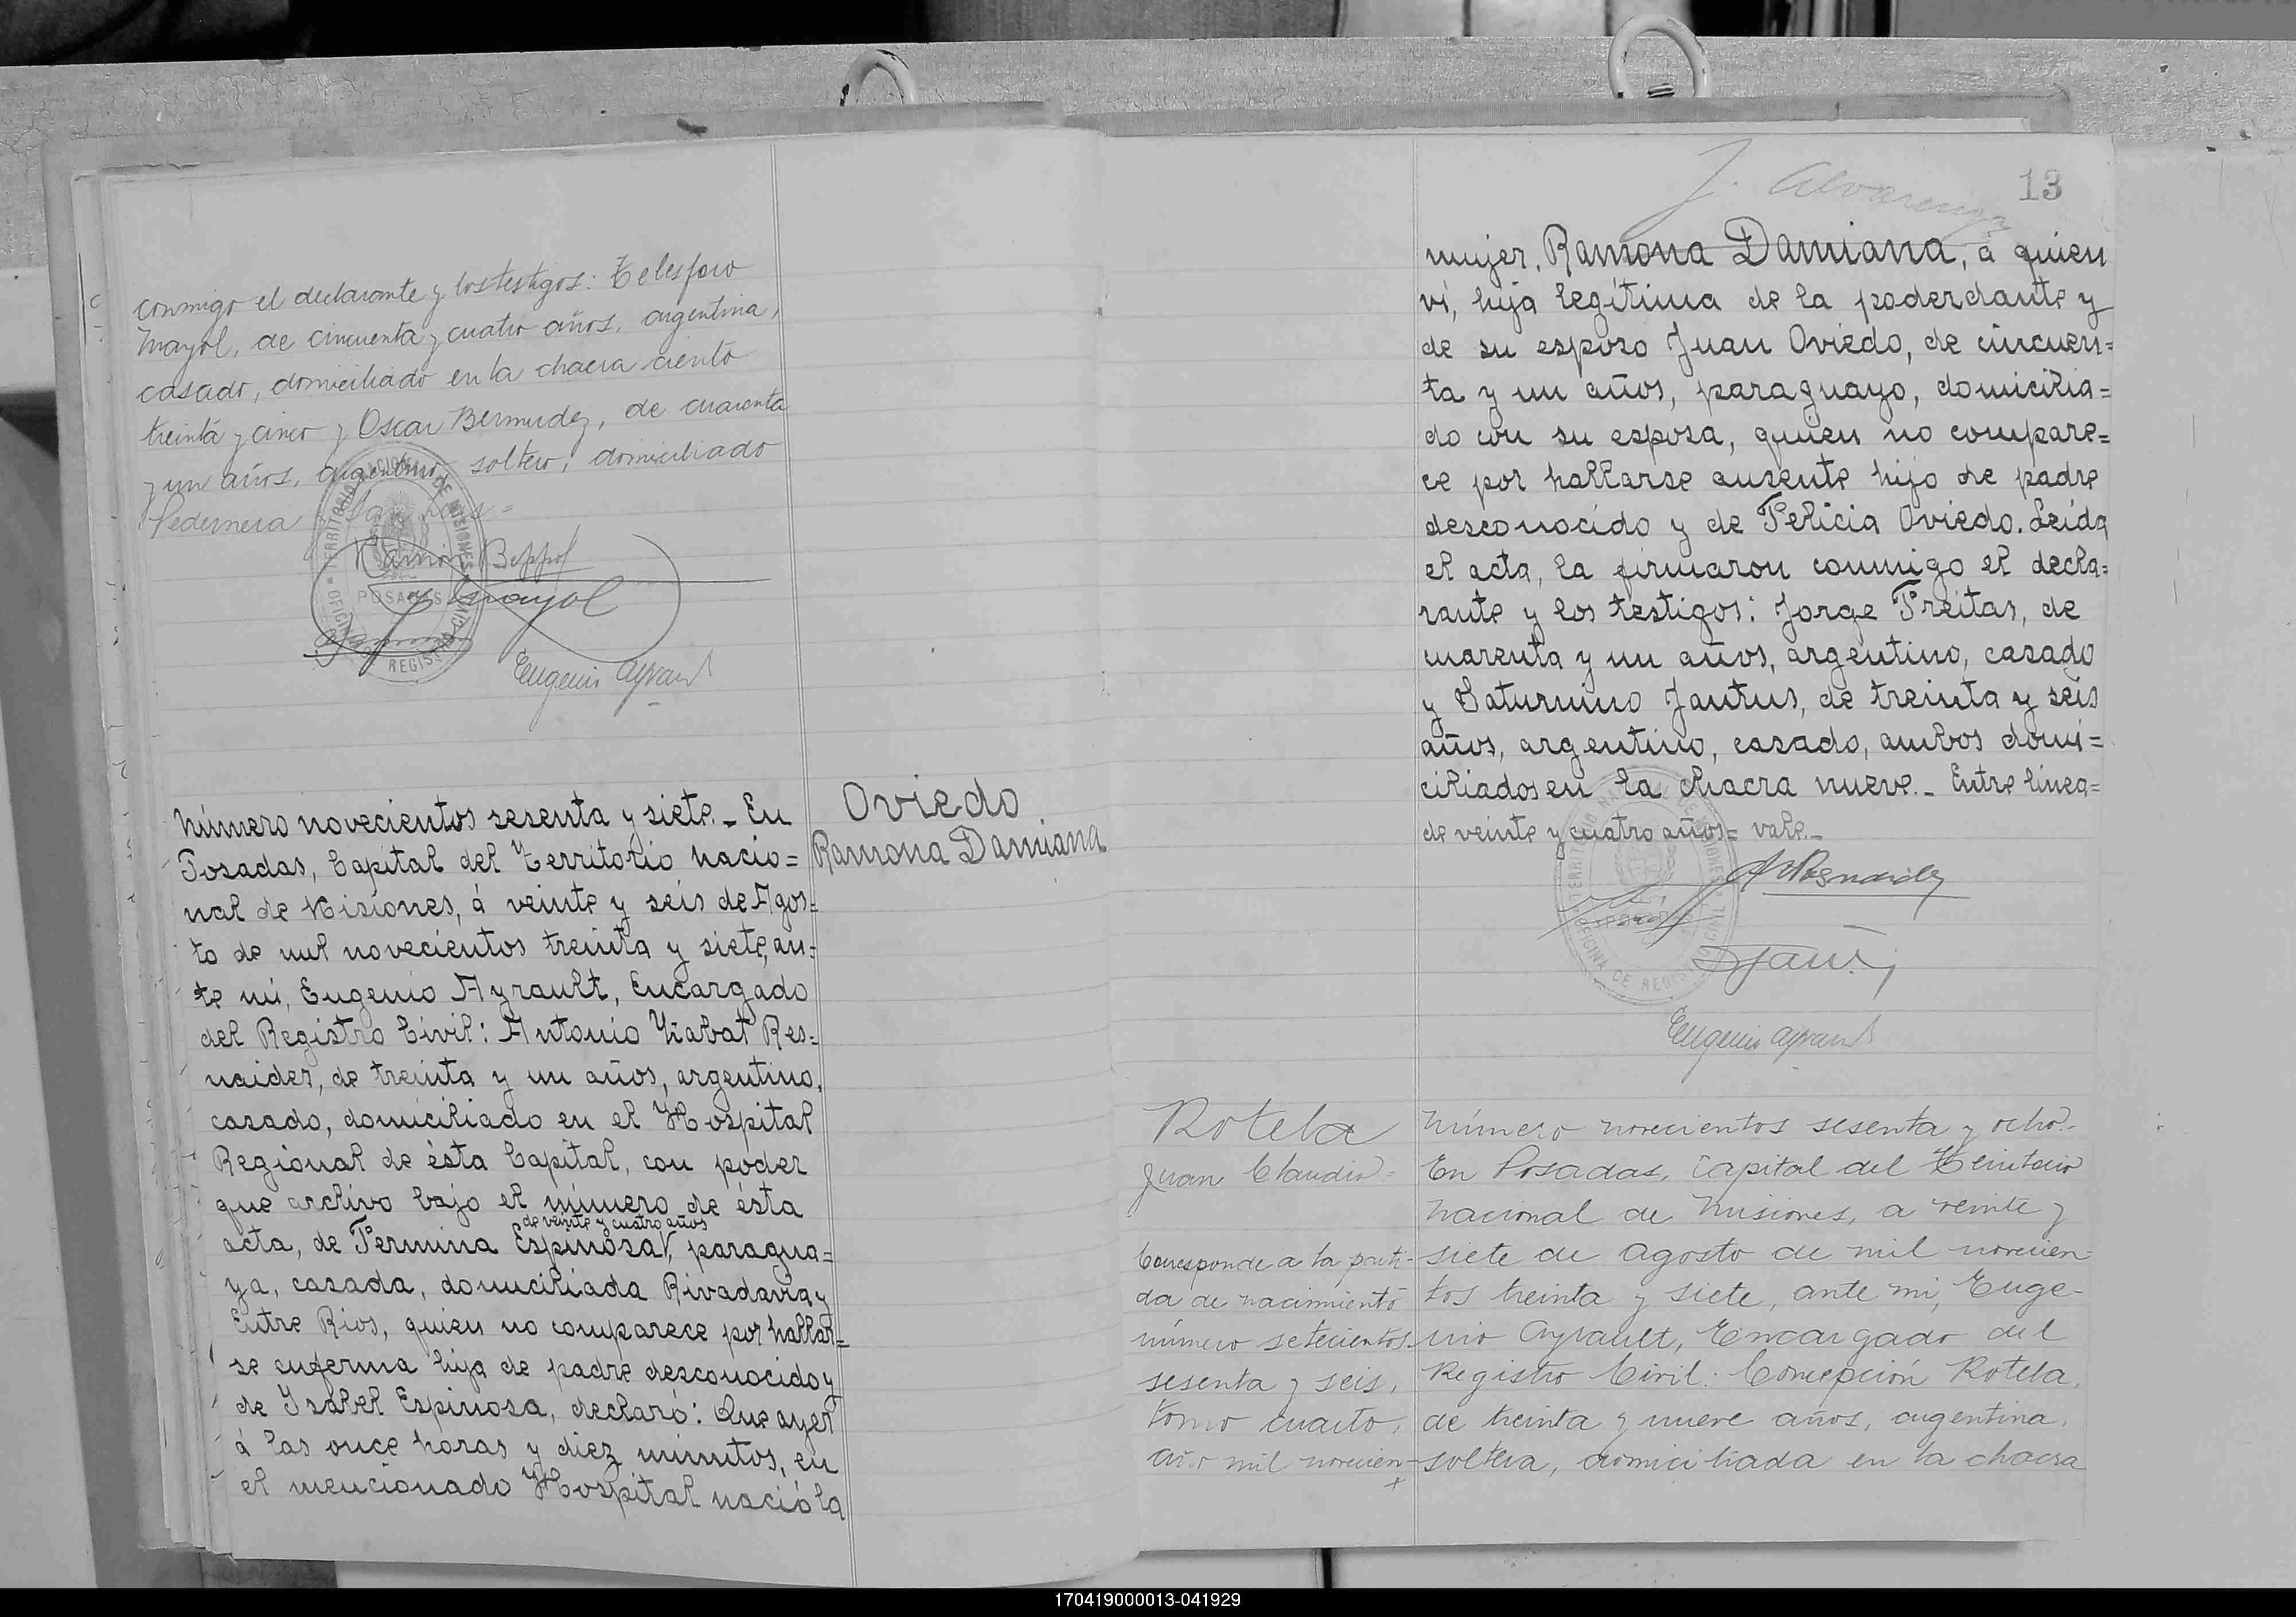 conmigo el declarante y los testigos: Telesforo
Mayol, de cincuenta y cuatro años, argentina,
casado, domiciliado en la chacra ciento
treinta y cinco y Oscar Bermudez, de cuarenta
y un años, argentino, soltero, domiciliado
Pedernera y San Luis=
Ramón Beppo
T Mayol
Eugenio Ayrault
TERRITORIO NACIONAL DE MISIONES
OFICINA DE REGISTRO CIVIL
POSADAS
Número novecientos sesenta y siete.- En
Posadas, Capital del Territorio nacio=
nal de Misiones, á veinte y seis de Agos=
to de mil novecientos treinta y siete, an=
te mi, Eugenio Ayrault, Encargado
del Registro Civil: Antonio Llabat Res=
naider, de treinta y un años, argentino,
casado, domiciliado en el Hospital
Regional de ésta Capital, con poder
que archivo bajo el número de ésta
de veinte y cuatro años
acta, de Fermina Espinosa, paragua=
ya, casada, domiciliada Rivadavia y
Entre Rios, quien no comparece por hallar=
se enferma hija de padre desconocido y
de Ysabel Espinosa, declaró: Que ayer
á las once horas y diez minutos, en
el mencionado Hospital nació la
Oviedo
Ramona Damiana
J. Alvarenga
13
mujer, Ramona Damiana, á quien
vi, hija legítima de la poderdante y
de su esposo Juan Oviedo, de cincuen=
ta y un años, paraguayo, domicilia=
do con su esposa, quien no compare=
ce por hallarse ausente hijo de padre
desconocido y de Felicia Oviedo. Leída
el acta, la firmaron conmigo el decla=
rante y los testigos: Jorge Freitas, de
cuarenta y un años, argentino, casado
y Saturnino Jantus, de treinta y seis
años, argentino, casado, ambos domi=
ciliados en la chacra nueve.- Entre línea=
de veinte y cuatro años= vale.-
TERRITORIO NACIONAL DE MISIONES
OFICINA DE REGISTRO CIVIL
POSADAS
Eugenio Ayrault
Rotela
Juan Claudio=
Corresponde a la parti-
da de nacimiento
número setecientos
sesenta y seis,
tomo cuarto,
año mil novecien-
+
Número novecientos sesenta y ocho.-
En Posadas, Capital del Territorio
Nacional de Misiones, a veinte y
siete de agosto de mil novecien
tos treinta y siete, ante mi, Euge-
nio Ayrault, Encargado del
Registro Civil: Concepción Rotela,
de treinta y nueve años, argentina,
soltera, domiciliada en la chacra
170419000013-041929